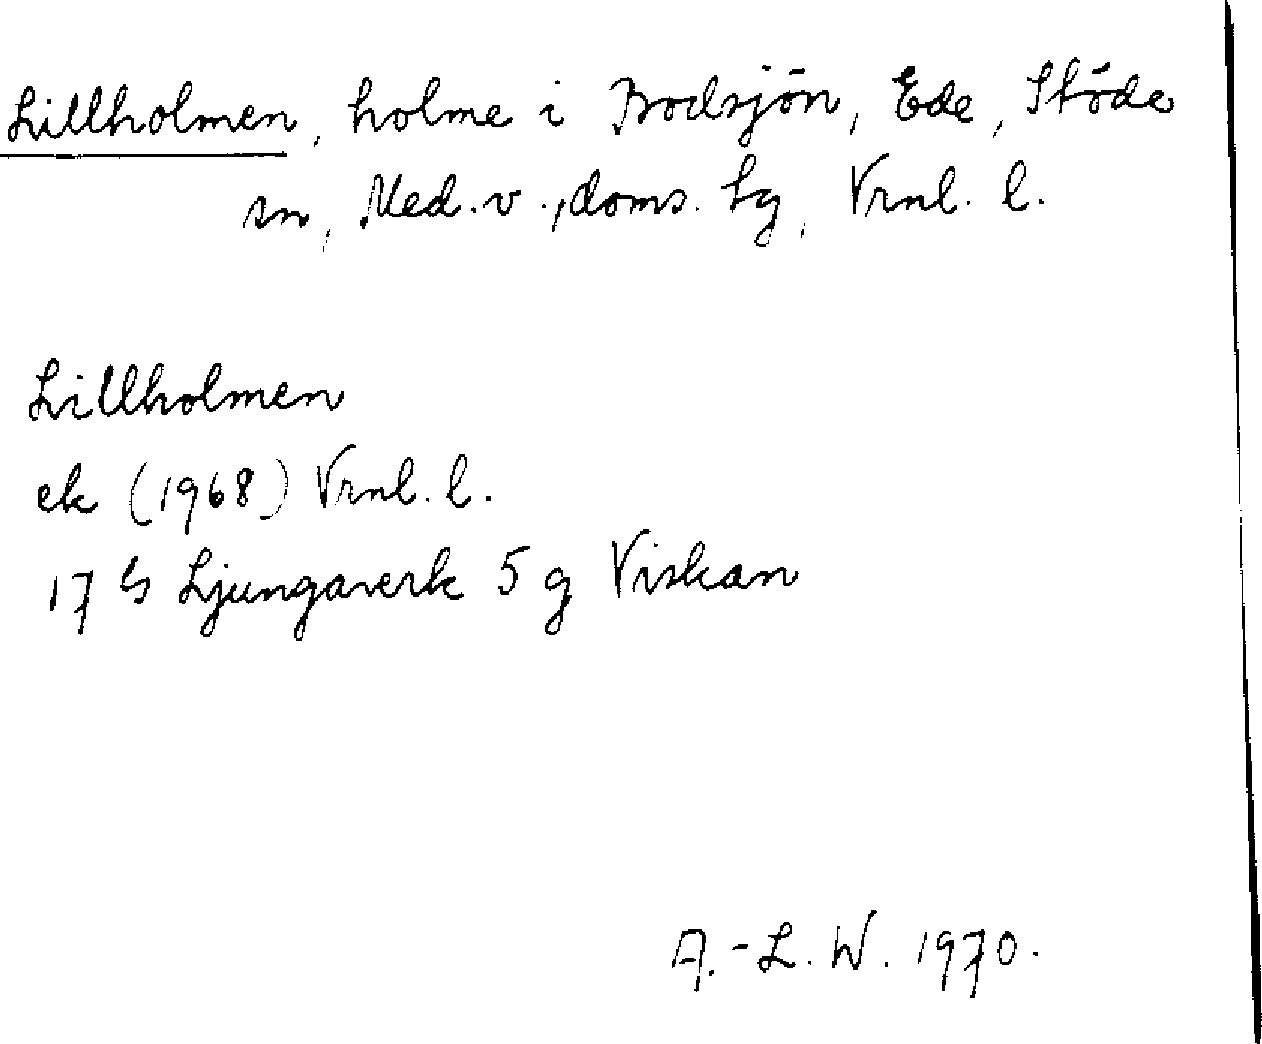 Lillholmen, holme i Bodsjön, Ede, Stöde
sn, Med. v., doms. hg, Vrnl. l.
Lillholmen
ek (1968) Vrnl. l.
17 G Ljungaverk 5 g Viskan
A.-L. W. 1970.